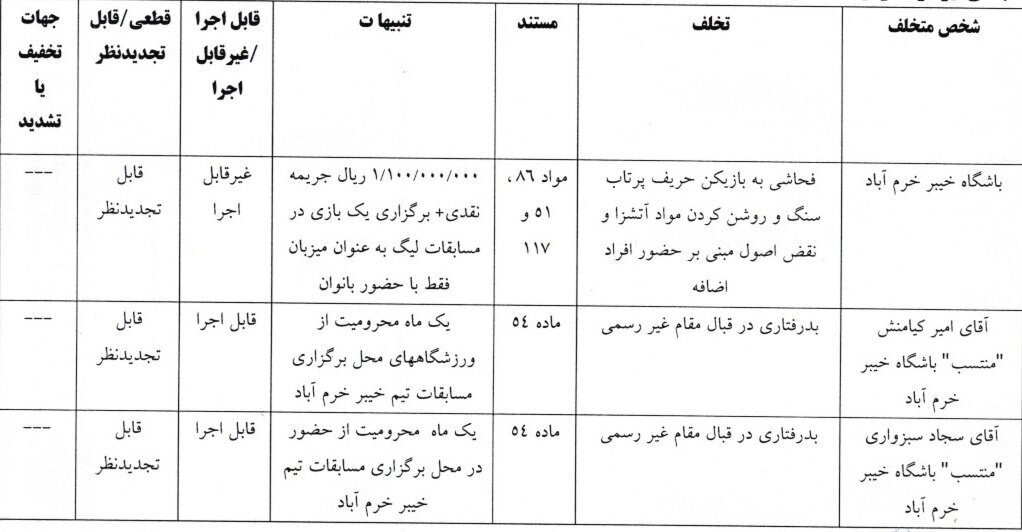 شخص متخلف
تخلف
مستند
تنبیهات
قابل اجرا
/غیرقابل
اجرا
قطعی/قابل
تجدیدنظر
جهات
تخفیف
یا
تشدید
باشگاه خیبر خرم آباد
فحاشی به بازیکن حریف پرتاب
سنگ و روشن کردن مواد آتشزا و
نقض اصول مبنی بر حضور افراد
اضافه
مواد ۸۶،
۵۱ و
۱۱۷
۱/۱۰۰/۰۰۰/۰۰۰ ریال جریمه
نقدی+ برگزاری یک بازی در
مسابقات لیگ به عنوان میزبان
فقط با حضور بانوان
غیرقابل
اجرا
قابل
تجدیدنظر
---
آقای امیر کیامنش
"منتسب" باشگاه خیبر
خرم آباد
بدرفتاری در قبال مقام غیر رسمی
ماده ٥٤
یک ماه محرومیت از
ورزشگاههای محل برگزاری
مسابقات تیم خیبر خرم آباد
قابل اجرا
قابل
تجدیدنظر
---
آقای سجاد سبزواری
"منتسب" باشگاه خیبر
خرم آباد
بدرفتاری در قبال مقام غیر رسمی
ماده ٥٤
یک ماه محرومیت از حضور
در محل برگزاری مسابقات تیم
خیبر خرم آباد
قابل اجرا
قابل
تجدیدنظر
---